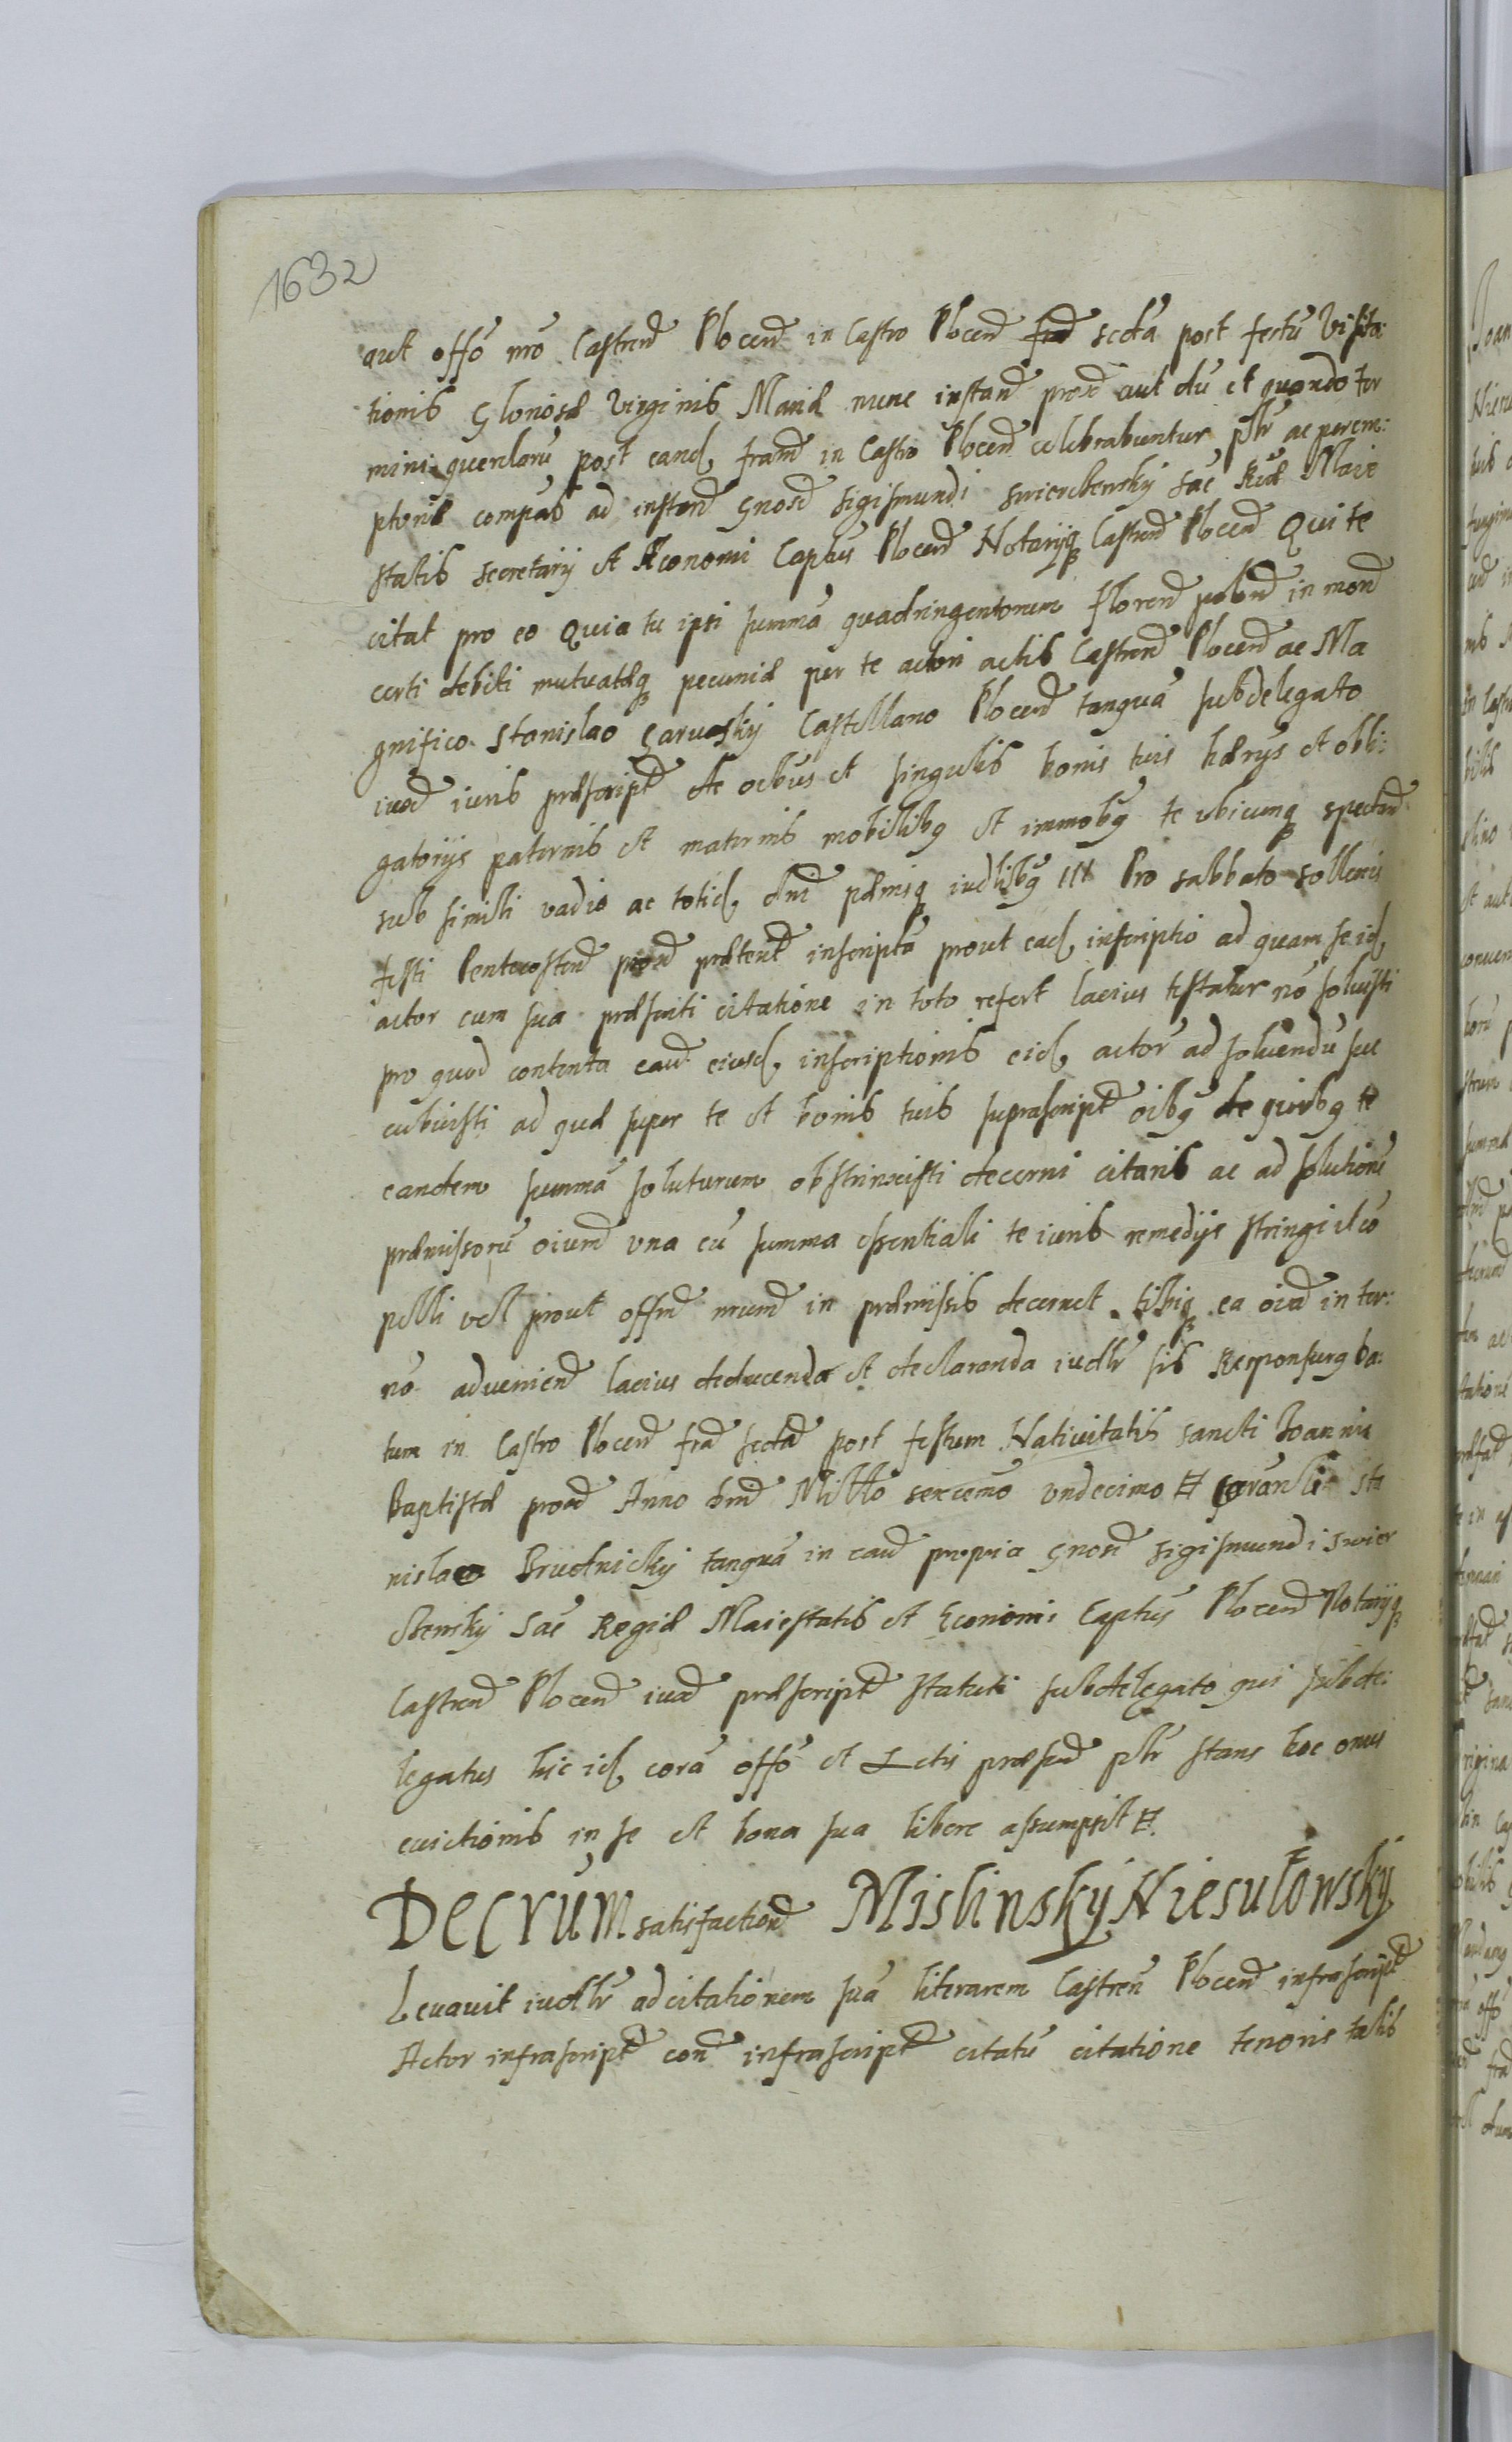 1632
aut offo nro Castren Plocen in Castro Plocen fra sexta post festu Visita:
tionis Gloriosæ Virginis Mariæ nunc instan prox aut du et quando ter
mini querelaru post eand fram in Castro Plocen celebrabuntur pltr ac perem:
ptoriæ compas ad instan Gnosi Sigismundi Swierczbensky Sac Riæ Maie
statis Secretarij et Æconomi Captus Plocen Notarijq Castren Plocen Qui te
citat pro eo Quia tu ipsi summa quadringentorum floren polon in mon
certi debiti mutuatæq pecuniæ per te actori actis Castren Plocen ac Ma
gnifico Stanislao Garwasky Castellano Plocen tanqua subdelegato
iux iuris præscript de oibus et singulis bonis tuis hærijs et obli:
gatorijs paternis et maternis mobilibq et immobq te ubicunq spectan
sub simili vadio ac totid dni pæmisq iudlibq III Pro sabbato sollenis
festi Pentecosten prox præterit inscripta prout ead inscriptio ad quam se id
actor cum sua præsenti citatione in toto refert lacius testatur no soluisti
pro quod contenta eaud eiusd inscriptionis eid actor ad soluendu suc
cubuisti ad quæ super te et bonis tuis suprascript oibq de quibq te
eandem summa soluturum obstrinxisti decerni citaris ac ad solutione
præmissoru oium una cu summa essentiali te iuris remedijs stringi et co
pelli vel prout offm nrum in præmissis decernet tibiq ea oia in ter:
no advenien lacius deducenda et declaranda iudlr sis Responsurq Da:
tum in Castro Plocen fra sexta post festum Nativitatis Sancti Joannis
Baptistæ prox Anno Dni Millo sexcemo undecimo Et Sta
nislao Brudnicky tanqua in caud propria Gnosi Sigismundi Swier
cbensky Sac Regiæ Maiestatis et Economi Captus Plocen Notarijq
Castren Plocen iux præscript statuti subdelegato qui subde:
legatus hic id cora offo et Actis præsen pltr stans hoc onus
euictionis in se et bona sua libere assumpsit Et
Decrum satisfaction Mislinsky Niesułowsky
Levavit iudlr ad citationem sua literarem Castren Plocen infrascript
Actor infrascript con infrascript citatu citatione tenoris talis